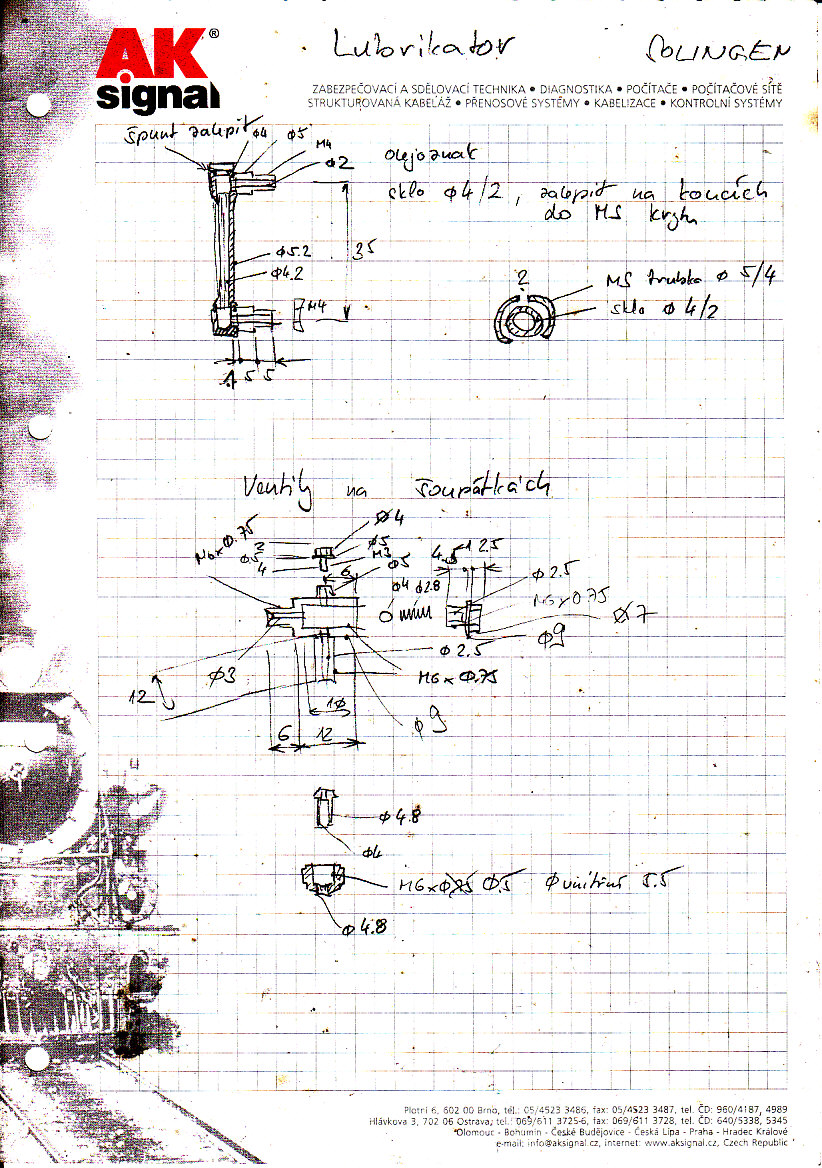 AK®
signal
Lubrikator SOLINGEN
ZABEZPEČOVACÍ A SDĚLOVACÍ TECHNIKA • DIAGNOSTIKA • POČÍTAČE • POČÍTAČOVÉ SÍTĚ
STRUKTUROVANÁ KABELÁŽ • PŘENOSOVÉ SYSTÉMY • KABELIZACE • KONTROLNÍ SYSTÉMY
Špunt zalepit
φ4 φ5 M4
φ2
olejoznak
sklo φ4/2, zalepit na koncích
do MS krytu
35
φ5.2
φ4.2
M4
1 5 5
2
MS trubka φ 5/4
sklo φ 4/2
Ventily na šoupátkách
M6xφ.75
2
φ.5
4
φ4
φ5
M3
φ5
6
φ4 φ2.8
4.5 1 2.5
φ2.5
M6x0.75
φ7
φ9
φ2.5
M6xφ.75
φ3
12
1φ
φ9
6 12
φ4.8
φ4
φ.5 φ vnitřní 5.5
φ4.8
Plotní 6, 602 00 Brno, tél.: 05/4523 3486, fax: 05/4523 3487, tel. ČD: 960/4187, 4989
Hlávkova 3, 702 06 Ostrava, tel.: 069/611 3725-6, fax: 069/611 3728, tel. ČD: 640/5338, 5345
Olomouc - Bohumín - České Budějovice - Česká Lípa - Praha - Hradec Králové
e-mail: info@aksignal.cz, internet: www.aksignal.cz, Czech Republic